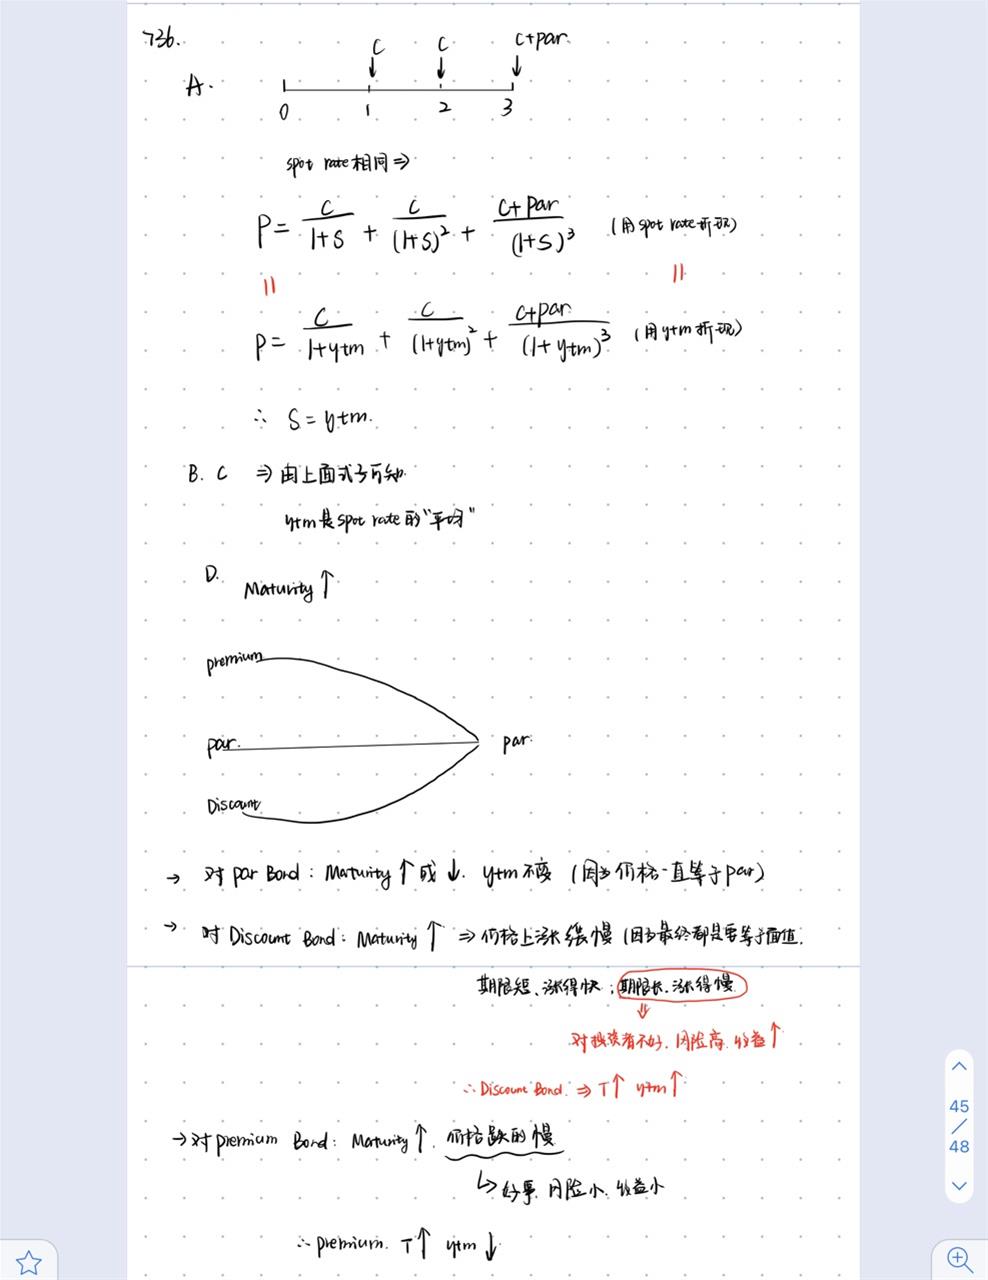 736.
C C C+par
A.
0 1 2 3
spot rate 相同 ⇒
P = C/(1+S) + C/(1+S)² + (C+par)/(1+S)³ (用 spot rate 折现)
= =
P = C/(1+ytm) + C/(1+ytm)² + (C+par)/(1+ytm)³ (用 ytm 折现)
∴ S = ytm.
B. C ⇒ 由上面式子可知
ytm 是 spot rate 的 "平均"
D. Maturity ↑
premium
par. par.
Discount
→ 对 par Bond : Maturity ↑ 或 ↓. ytm 不变 (因为价格一直等于 par)
→ 对 Discount Bond : Maturity ↑ ⇒ 价格上涨缓慢 (因为最终都是要等于面值.
期限短、涨得快 ; 期限长、涨得慢
⇓
对投资者不好. 风险高. 收益 ↑
∴ Discount Bond. ⇒ T↑ ytm↑
→ 对 premium Bond : Maturity ↑. 价格跌的慢
↳ 好事. 风险小. 收益小
∴ premium. T↑ ytm ↓
45
/
48